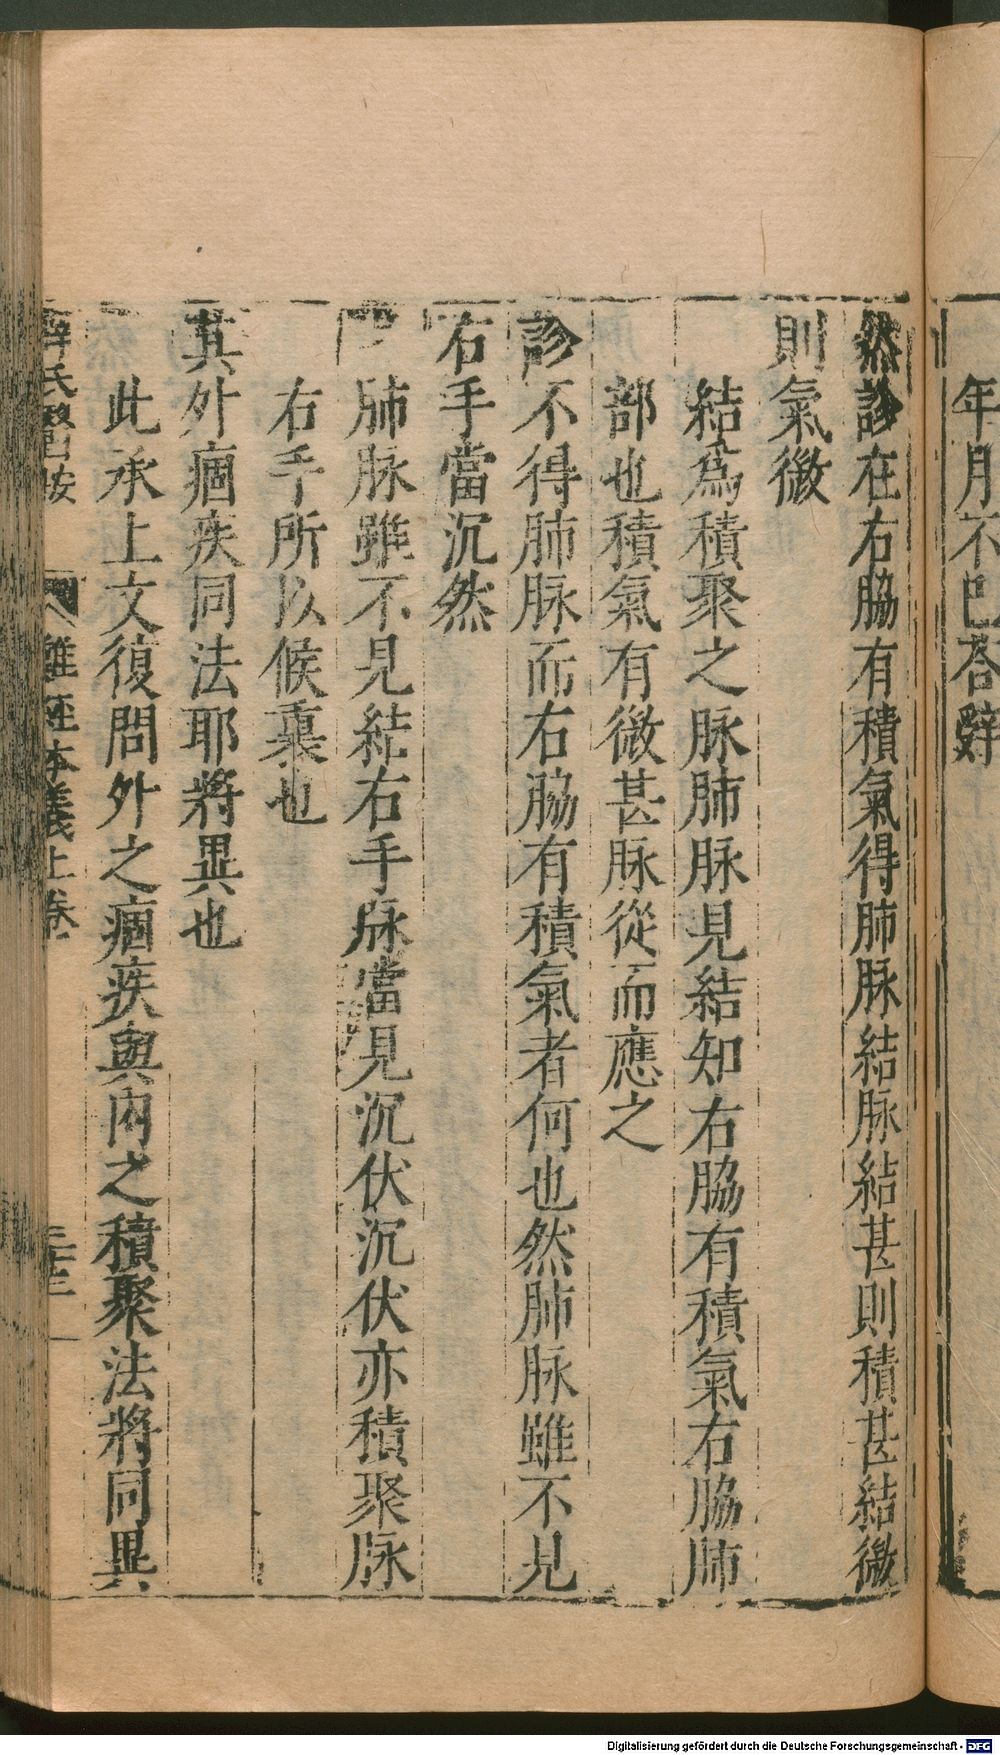 年月不已荅
然診在右脇有積氣得肺脉結脉結甚則積甚結微
則氣微
結爲積聚之脉肺脉見結知右脇有積氣右脇肺
部也積氣有微甚脉從而應之
診不得肺脉而右脇有積氣者何也然肺脉雖不見
右手當沉然
肺脉雖不見結右手脉當見沉伏沉伏亦積聚脉
右手所以候裏也
其外痼疾同法耶將異也
此承上文復問外之痼疾與内之積聚法將同異
薛氏醫按 難經本義上卷 二十三
Digitalisierung gefördert durch die Deutsche Forschungsgemeinschaft - DFG